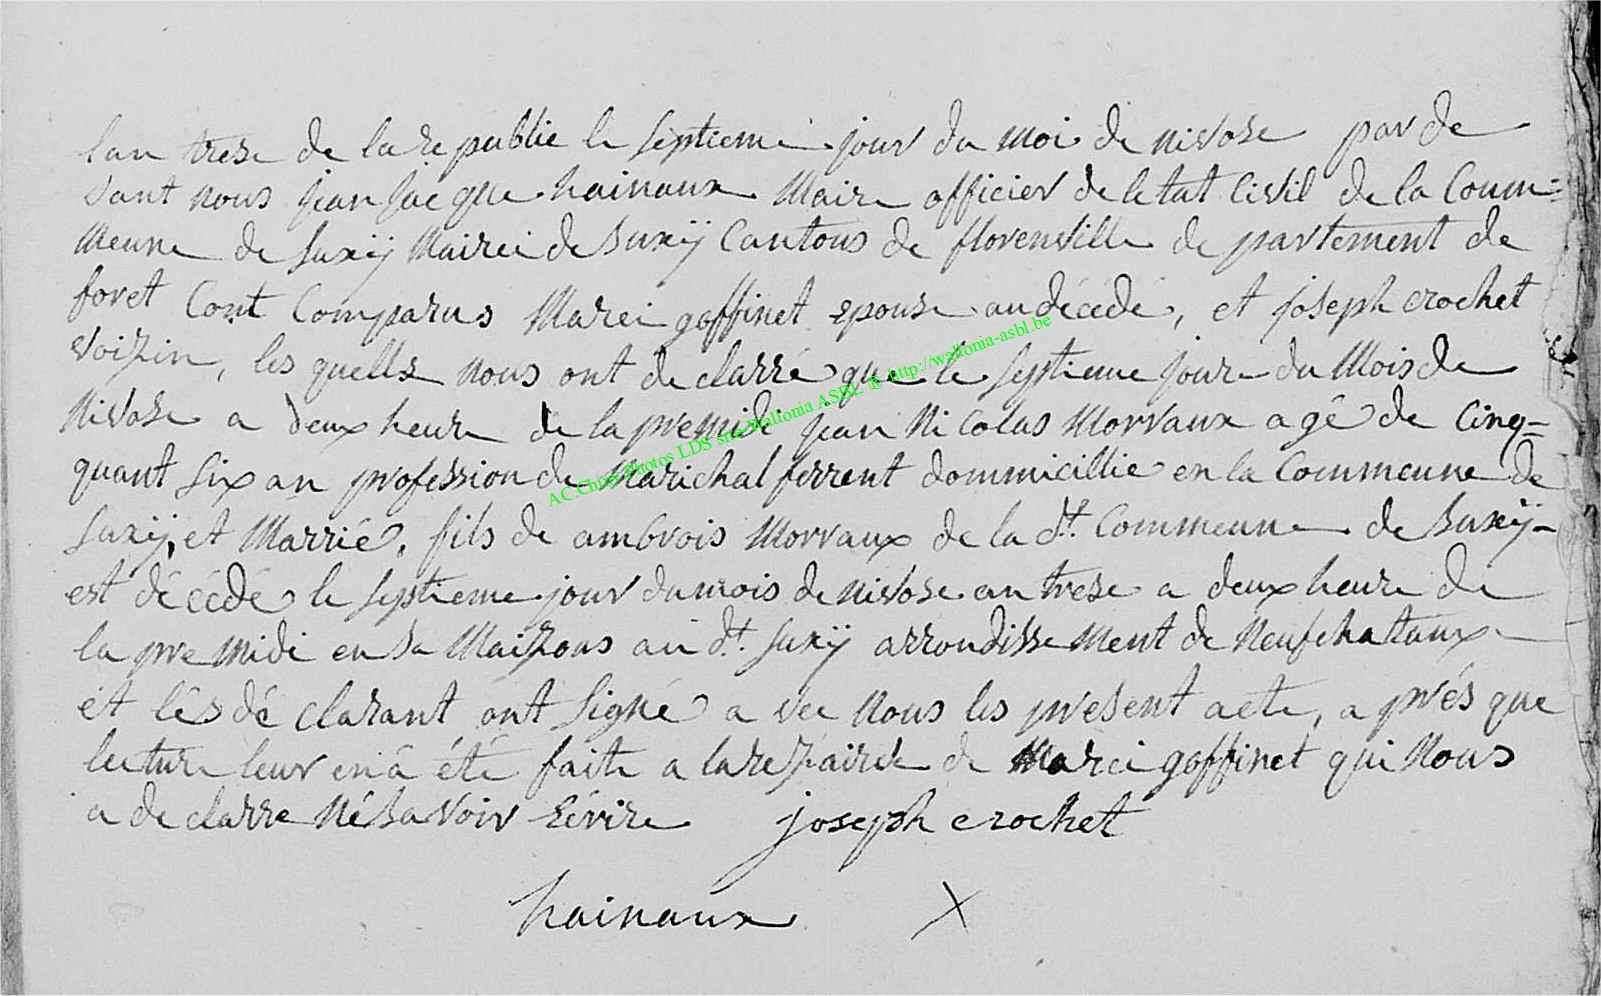 lan trese de la re publie le septieme jour du moi de nivose par de
vant nous jean jacque hainaux Maire officier de letat Civil de la Comm=
meune de Suxÿ Mairei de Suxÿ Cantons de florenville de partement de
foret Cont Comparus Marei goffinet epouse au décédé, et joseph crochet
voizin, les quells nous ont de clarré que le septieme jour du Mois de
Nivose a deux heure de la pre midi jean Nicolas Morvaux agé de Cinq=
quant Six an profession de Marichal ferrent dommicillie en la Commeune de
Suxÿ, et Marrié, fils de ambrois Morvaux de la dt. Commeune de Suxÿ-
est décédé le septieme jour du mois de nivose an trese a deux heure de
la pre midi en Sa Maizons au dt. Suxÿ arrondisse Ment de Neufchataux
et lés dé clarant ont Signé a vec Nous les present acte, a prés que
lecture leur en â été faite a la rezairve de Marei goffinet qui Nous
a de clarre Né Savoir Ecrire joseph crochet
hainaux X
AC Chiny Photos LDS site Wallonia ASBL ® http://wallonia-asbl.be